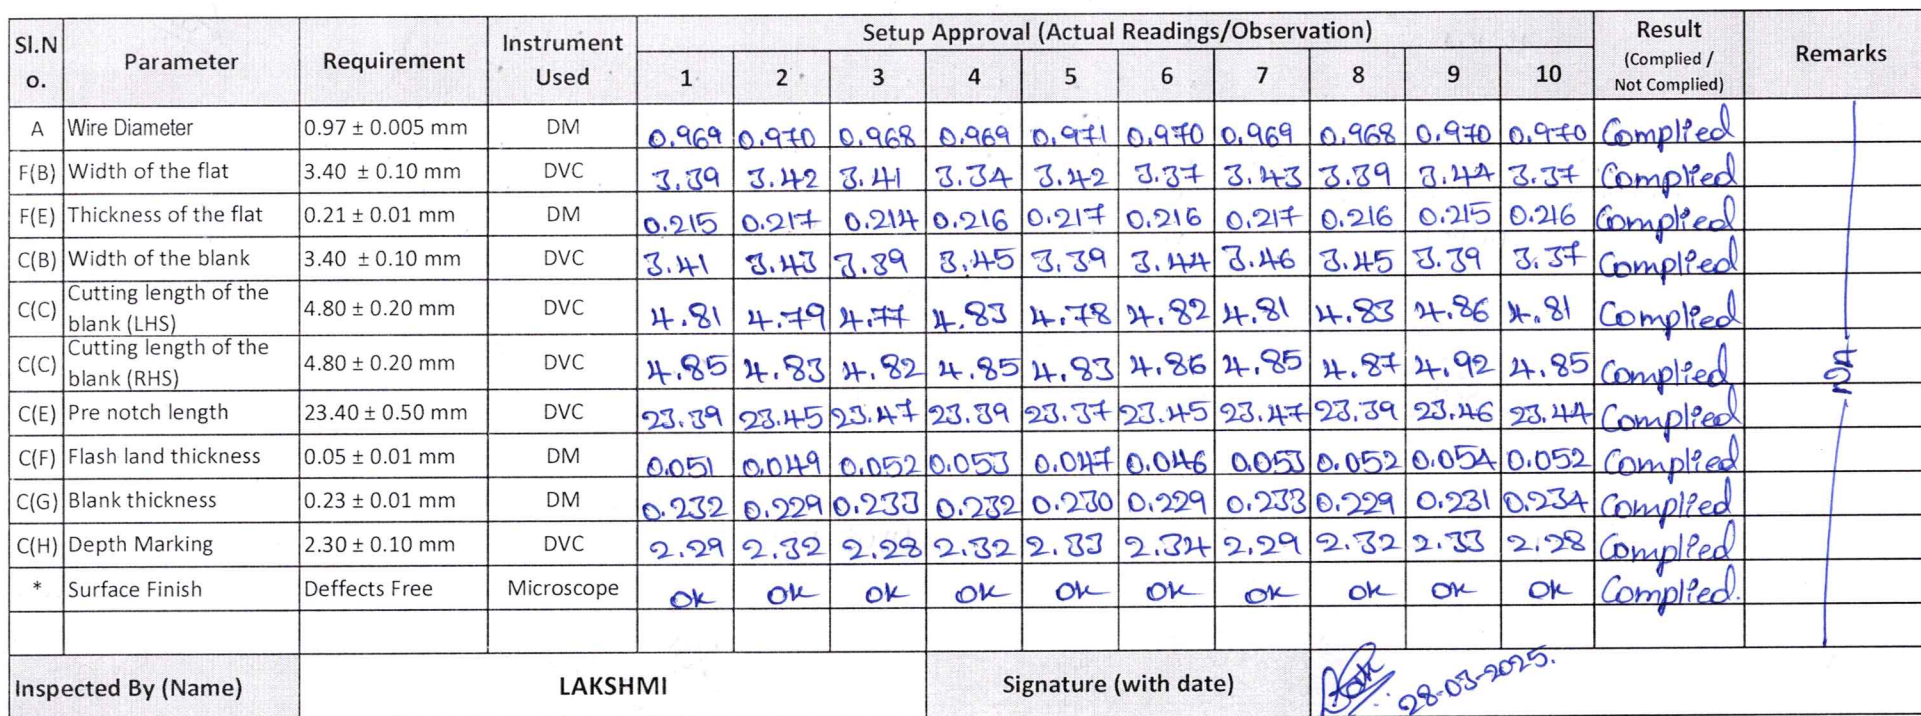 Sl.N o. Parameter Requirement Instrument Used Setup Approval (Actual Readings/Observation) Result (Complied / Not Complied) Remarks
1 2 3 4 5 6 7 8 9 10
A Wire Diameter 0.97 ± 0.005 mm DM 0.969 0.970 0.968 0.969 0.971 0.970 0.969 0.968 0.970 0.970 Complied
F(B) Width of the flat 3.40 ± 0.10 mm DVC 3.39 3.42 3.41 3.34 3.42 3.37 3.43 3.39 3.44 3.37 Complied
F(E) Thickness of the flat 0.21 ± 0.01 mm DM 0.215 0.217 0.214 0.216 0.217 0.216 0.217 0.216 0.215 0.216 Complied
C(B) Width of the blank 3.40 ± 0.10 mm DVC 3.41 3.43 3.39 3.45 3.39 3.44 3.46 3.45 3.39 3.37 Complied
C(C) Cutting length of the blank (LHS) 4.80 ± 0.20 mm DVC 4.81 4.79 4.77 4.83 4.78 4.82 4.81 4.83 4.86 4.81 Complied
C(C) Cutting length of the blank (RHS) 4.80 ± 0.20 mm DVC 4.85 4.83 4.82 4.85 4.83 4.86 4.85 4.87 4.92 4.85 Complied
C(E) Pre notch length 23.40 ± 0.50 mm DVC 23.39 23.45 23.47 23.39 23.37 23.45 23.47 23.39 23.46 23.44 Complied
C(F) Flash land thickness 0.05 ± 0.01 mm DM 0.051 0.049 0.052 0.053 0.047 0.046 0.053 0.052 0.054 0.052 Complied
C(G) Blank thickness 0.23 ± 0.01 mm DM 0.232 0.229 0.233 0.232 0.230 0.229 0.233 0.229 0.231 0.234 Complied
C(H) Depth Marking 2.30 ± 0.10 mm DVC 2.29 2.32 2.28 2.32 2.33 2.34 2.29 2.32 2.33 2.28 Complied
* Surface Finish Deffects Free Microscope OK OK OK OK OK OK OK OK OK OK Complied.
Inspected By (Name) LAKSHMI Signature (with date) 28-03-2025.